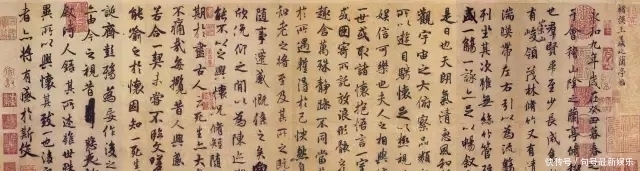 褚模王羲之蘭亭帖
永和九年歲在癸丑暮春
于會稽山陰之蘭亭脩
也群賢畢至少長咸
有崇山峻領茂林脩竹又有清
湍暎帶左右引以為流
列坐其次雖無絲竹管弦
盛一觴一詠亦足以暢敘
是日也天朗氣清惠風和
觀宇宙之大俯察品類
所以遊目騁懷足以極視
娛信可樂也夫人之相與
一世或取諸懷抱悟言一室
或因寄所託放浪形骸之
趣舍萬殊靜躁不同
於所遇暫得於己怏然自
知老之將至及其所之
隨事遷感慨係之矣向
欣俛仰之間以為陳迹
能不以之興懷況脩短隨
期於盡古人云死生亦大
不痛哉每攬昔人興感
若合一契未嘗不臨文嗟
能喻之於懷固知一死
誕齊彭殤為妄作後之
亦由今之視昔悲夫
敘時人錄其所述雖世殊
異所以興懷其致一也後之
者亦將有感於斯文
快传号/句号最新娱乐